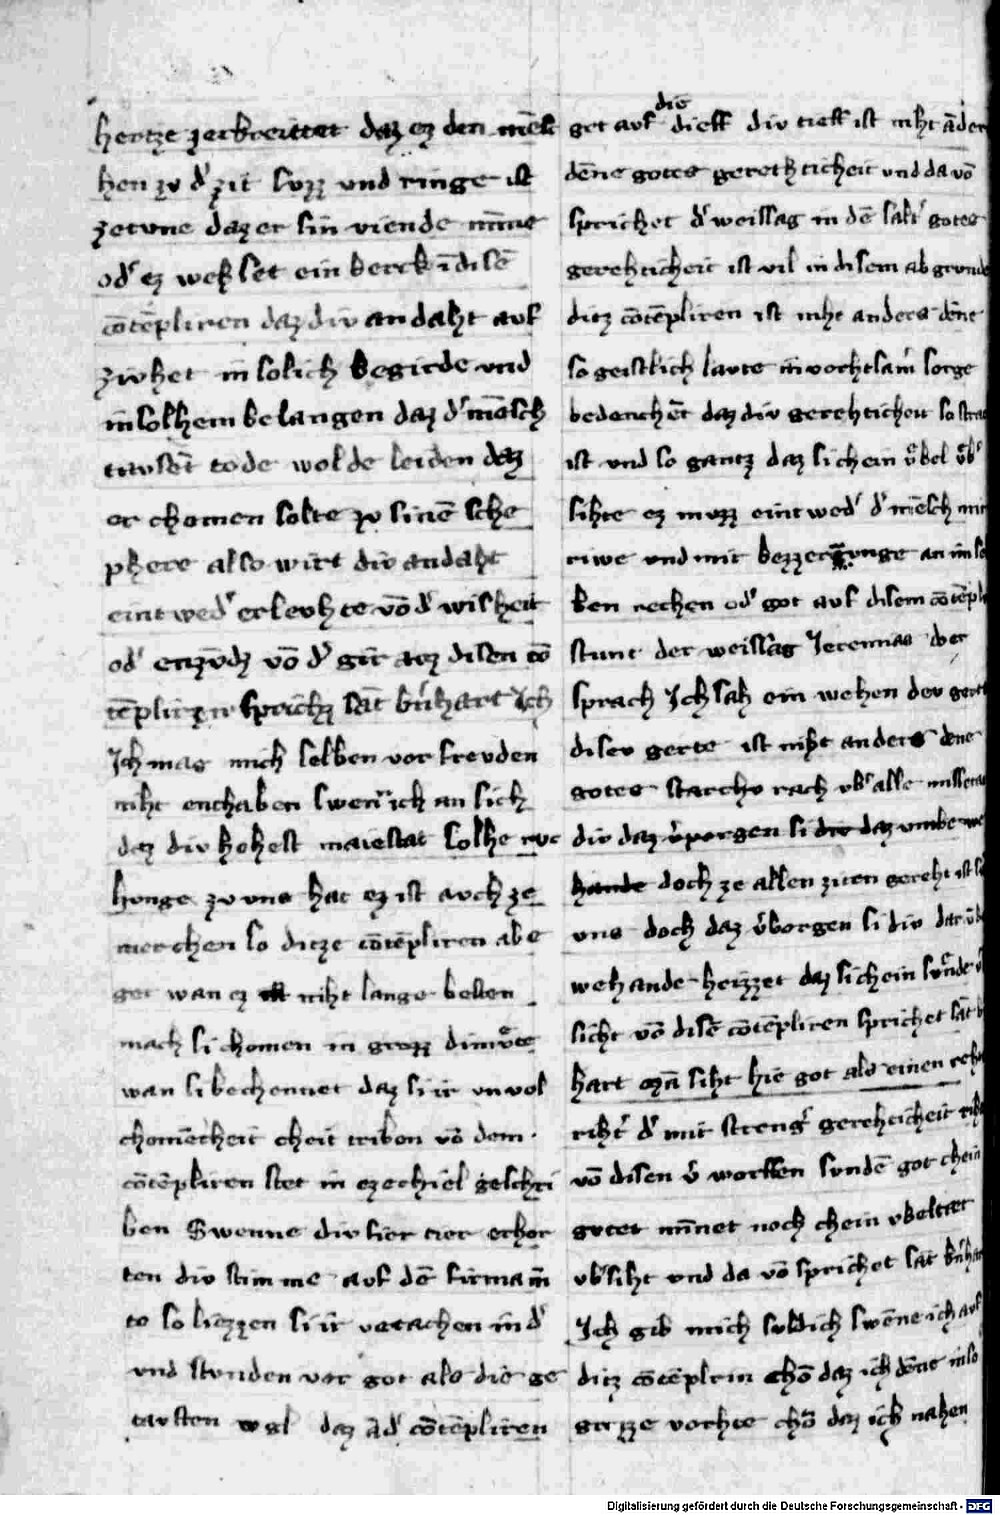 hertze zerbreittet daz ez den mēsc
hen zv d' zit svzz vnd ringe ist
zetvne daz er sin viende minne
od' ez wehset ein berck ī disē
cōtēpliren daz div andaht auf
zivhet in solich begirde vnd
in solhem belangen daz d' mēsch
tavsēt tode wolde leiden daz
er chomen solte zv sinē sche
phere also wirt div andaht
eintwed' erlevhte vō d' wisheit
od' enzvdz vō d' git avz disen cō
tēpliren sprichz sāt b'nhart Ich
Ich mag mich selben vor frevden
niht enthaben swen ich an sich
daz div hohest maiestat solhe rvc
hvnge zv vns hat ez ist avch ze
merchen so ditze cōtēpliren abe
get wan ez niht lange besten
mach si chomen in grozz dimvte
wan si bechennet daz si ir vnvol
chomēcheit cheit triben vō dem
cōtēpliren stet in ezechiel geschri
ben Swenne div fier tier erhor
ten div stimme auf dē firmam̄
te so liezzen si ir vetachen in d'
vnd stvnden vor got als die ge
tavften wol daz ād' cōtēpliren
get avf die dieff div tieff ist niht āder
dēne gotes gerehticheit vnd da vō
sprichet d' weissag in dē salt' gotes
gerehticheit ist vil in disem abgrvnde
ditz cōtēpliren ist niht anders dēne
so geistlich lavte in vorhtsam' sorge
bedenchēt daz div gerehticheit so stra
ist vnd so gantz daz si chein vbel vb'
sihte ez mvzz eintwed' d' mēsch mit
riwe vnd mit bezzervnge an im se
ben rechen od' got avf disem cōtēpl
stvnt der weissag Jeremias der
sprach Ich sah ein wehen dev gert
disev gerte ist niht anders dēne
gotes starche rach vb' alle misseta
div daz v'porgen si div daz vmbe we
hande doch ze allen ziten gereht ist s
vns doch daz v'borgen si div dar vb
wehande heizzet daz si chein svnde v
siht vō disē cōtēpliren sprichet sāt b
hart Man siht hie got als einen reh
riht' d' mit streng' gerehticheit rih
vō disen v'worffen svndē got chein
gvtet minnet noch chein vbeltaet
vb'siht vnd da vō sprichet sāt b'nhar
Ich gib mich svldich swēne ich avf
ditz cōtēplirn chō daz ich dēne in so
grozze vorhte chō daz ich nahen
Digitalisierung gefördert durch die Deutsche Forschungsgemeinschaft - DFG